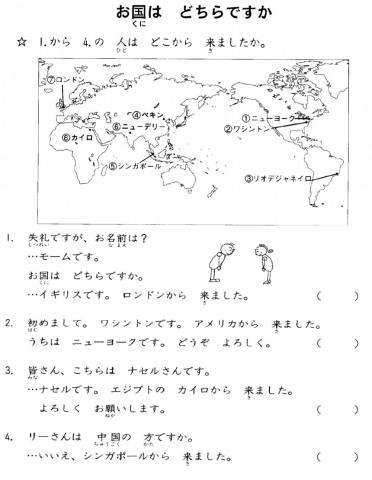 お国は どちらですか
くに
☆ 1.から 4.の 人は どこから 来ましたか。
ひと き
⑦ロンドン
④ペキン
①ニューヨーク
⑥ニューデリー
②ワシントン
⑥カイロ
⑤シンガポール
③リオデジャネイロ
1. 失礼ですが、お名前は？
しつれい なまえ
…モームです。
お国は どちらですか。
くに
…イギリスです。 ロンドンから 来ました。 (　　)
き
2. 初めまして。 ワシントンです。 アメリカから 来ました。
はじ き
うちは ニューヨークです。 どうぞ よろしく。 (　　)
3. 皆さん、こちらは ナセルさんです。
みな
…ナセルです。 エジプトの カイロから 来ました。
き
よろしく お願いします。 (　　)
ねが
4. リーさんは 中国の 方ですか。
ちゅうごく かた
…いいえ、シンガポールから 来ました。 (　　)
き